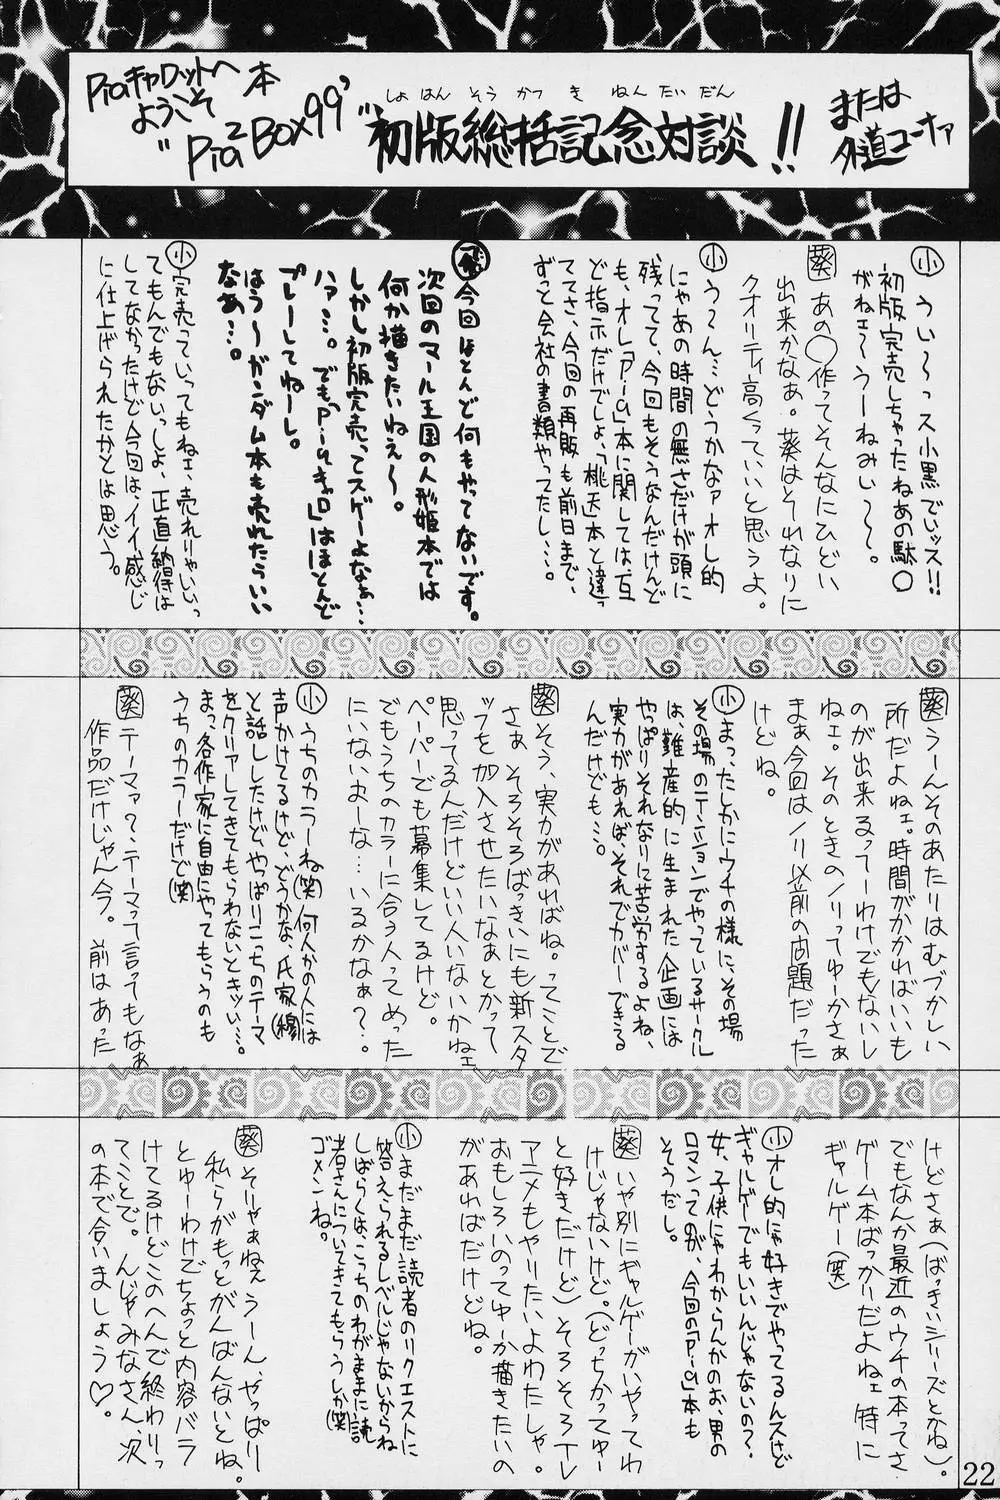 Piaキャロットへ
ようこそ
本
"Pia2Box99'"
しょはんそうかつきねんたいだん
初版総括記念対談!!
または
外道コーナァ
小 うい〜っス小黒でぃッス!!
初版完売しちゃったねあの駄○
がねェ〜うーねみぃ〜〜。
葵 あの○作ってそんなにひどい
出来かなぁ。葵はそれなりに
クオリティ高くっていいと思うよ。
小 う〜ん…どうかなァオレ的
にゃあの時間の無さだけが頭に
残ってて、今回もそうなんだけんど
も、オレ「Pia」本に関しては、互
ど指示だけでしょ、「桃天」本と違っ
ててさ、今回の再販も前日まで、
ずっと会社の書類やってたし…。
今回ほとんど何もやってないです。
次回のマール王国の人形姫本では
何か描きたいねぇ〜。
しかし初版完売ってスゲーよなぁ…
ハァ…。でも「Piaキャロ」はほとんど
プレーしてねーし。
はう〜ガンダム本も売れたらいい
なぁ…。
小 完売っていってもねェ、売れりゃいいっ
てもんでもないっしょ、正直納得は
してなかったけど今回は、イイ感じ
に仕上げられたかとは思う。
葵 うーんそのあたりはむづかしい
所だよねェ。時間がかかればいいも
のが出来るってーわけでもないし
ねェ。そのときのノリってゆーかさぁ
まぁ今回はノリ以前の問題だった
けどね。
小 まったしかにウチの様に、その場
その場のテンションでやっているサークル
は、難産的に生まれた企画には
やっぱりそれなりに苦労するよね、
実力があれば、それでカバーできる
んだけども…。
葵 そう、実力があればね。ってことで
さぁ そろそろばっきぃにも新スタ
ッフを加入させたいなぁとかって
思ってるんだけどいい人いないかねェ
ペーパーでも募集してるけど。
でもうちのカラーに合う人ってめった
にいないよーな…いるかなぁ?…。
小 うちのカラーね(笑)何人かの人には
声かけてるけど、どうかな、氏家(穆)
と話ししたけど、やっぱりこっちのテーマ
をクリアしてきてもらわないとキッい…。
まっ、各作家に自由にやってもらうのも
うちのカラーだけど(笑)
葵 テーマァ?、テーマって言ってもなぁ
作品だけじゃん今。 前はあった
けどさぁ(ばっきぃシリーズとかね)。
でもなんか最近のウチの本ってさ
ゲーム本ばっかりだよねェ 特に
ギャルゲー(笑)
小 オレ的にゃ好きでやってるんスけど
ギャルゲーでもいいんじゃないの?、
女、子供にゃわからんかのぉ、男の
ロマンってのが、今回の「Pia」本も
そうだし。
葵 いや別にギャルゲーがいやってわ
けじゃないけど。(どっちかってゆー
と好きだけど)そろそろTレ
アニメもやりたいよわたしゃ。
おもしろいのってゆーか描きたいの
があればだけどね。
小 まだまだ読者のリクエストに
答えられるレベルじゃないからね
しばらくは、こっちのわがままに読
者さんについてきてもらうしか(笑)
ゴメンね。
葵 そりゃぁねぇうーん、やっぱり
私らがもっとがんばんないとね。
とゆーわけでちょっと内容バラ
けてるけどこのへんで終わりっ
てことで。んじゃみなさん、次
の本で合いましょう♡。
22